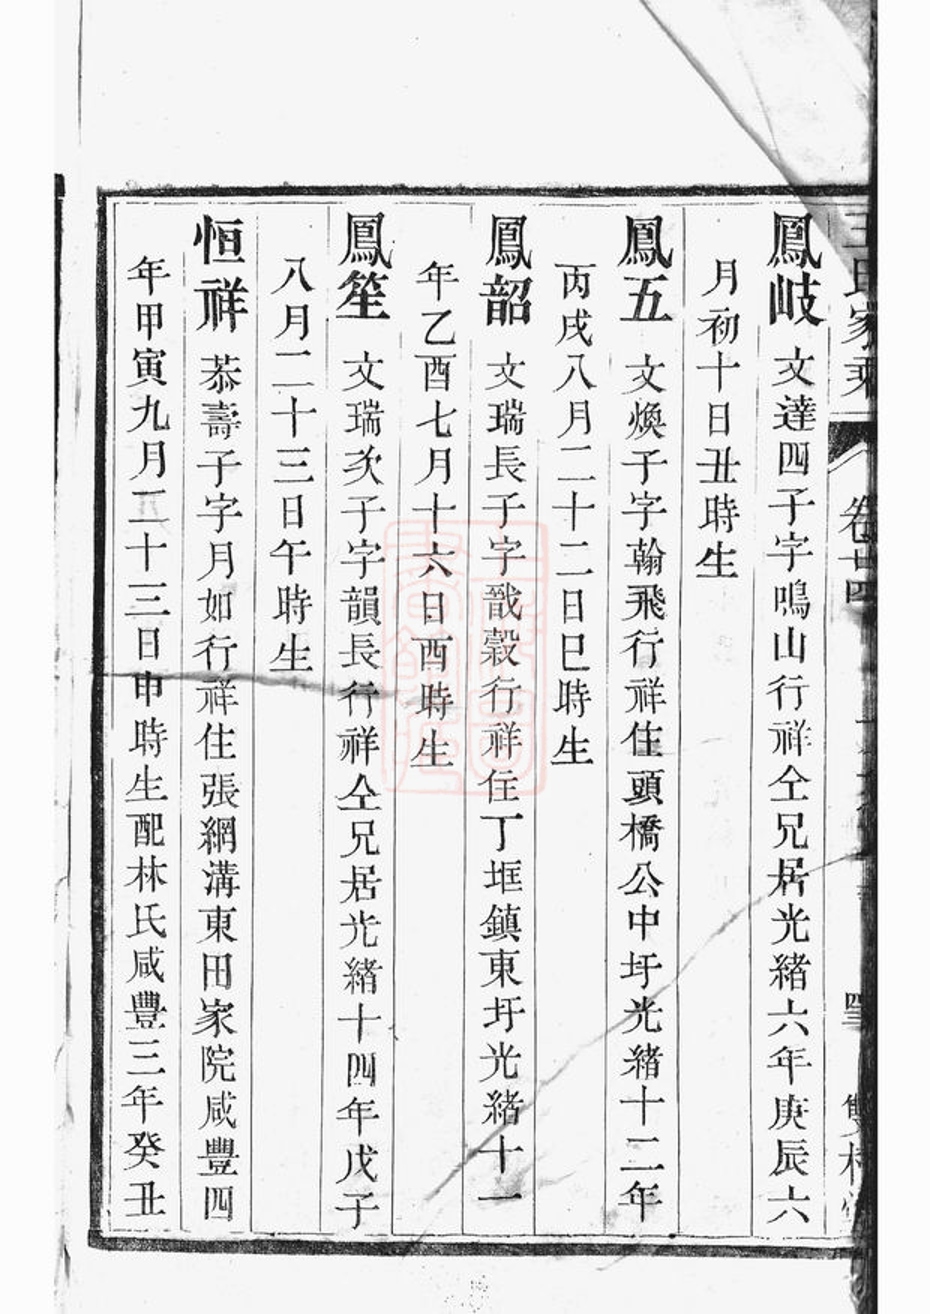 王氏家乘
卷廿四
鳳岐 文達四子字鳴山行祥仝兄居光緒六年庚辰六
月初十日丑時生
鳳五 文煥子字翰飛行祥住頭橋公中圩光緒十二年
丙戌八月二十二日巳時生
鳳韶 文瑞長子字戩穀行祥住丁堰鎮東圩光緒十一
年乙酉七月十六日酉時生
鳳笙 文瑞次子字韻長行祥仝兄居光緒十四年戊子
八月二十三日午時生
恒祥 恭壽子字月如行祥住張網溝東田家院咸豐四
年甲寅九月二十三日申時生配林氏咸豐三年癸丑